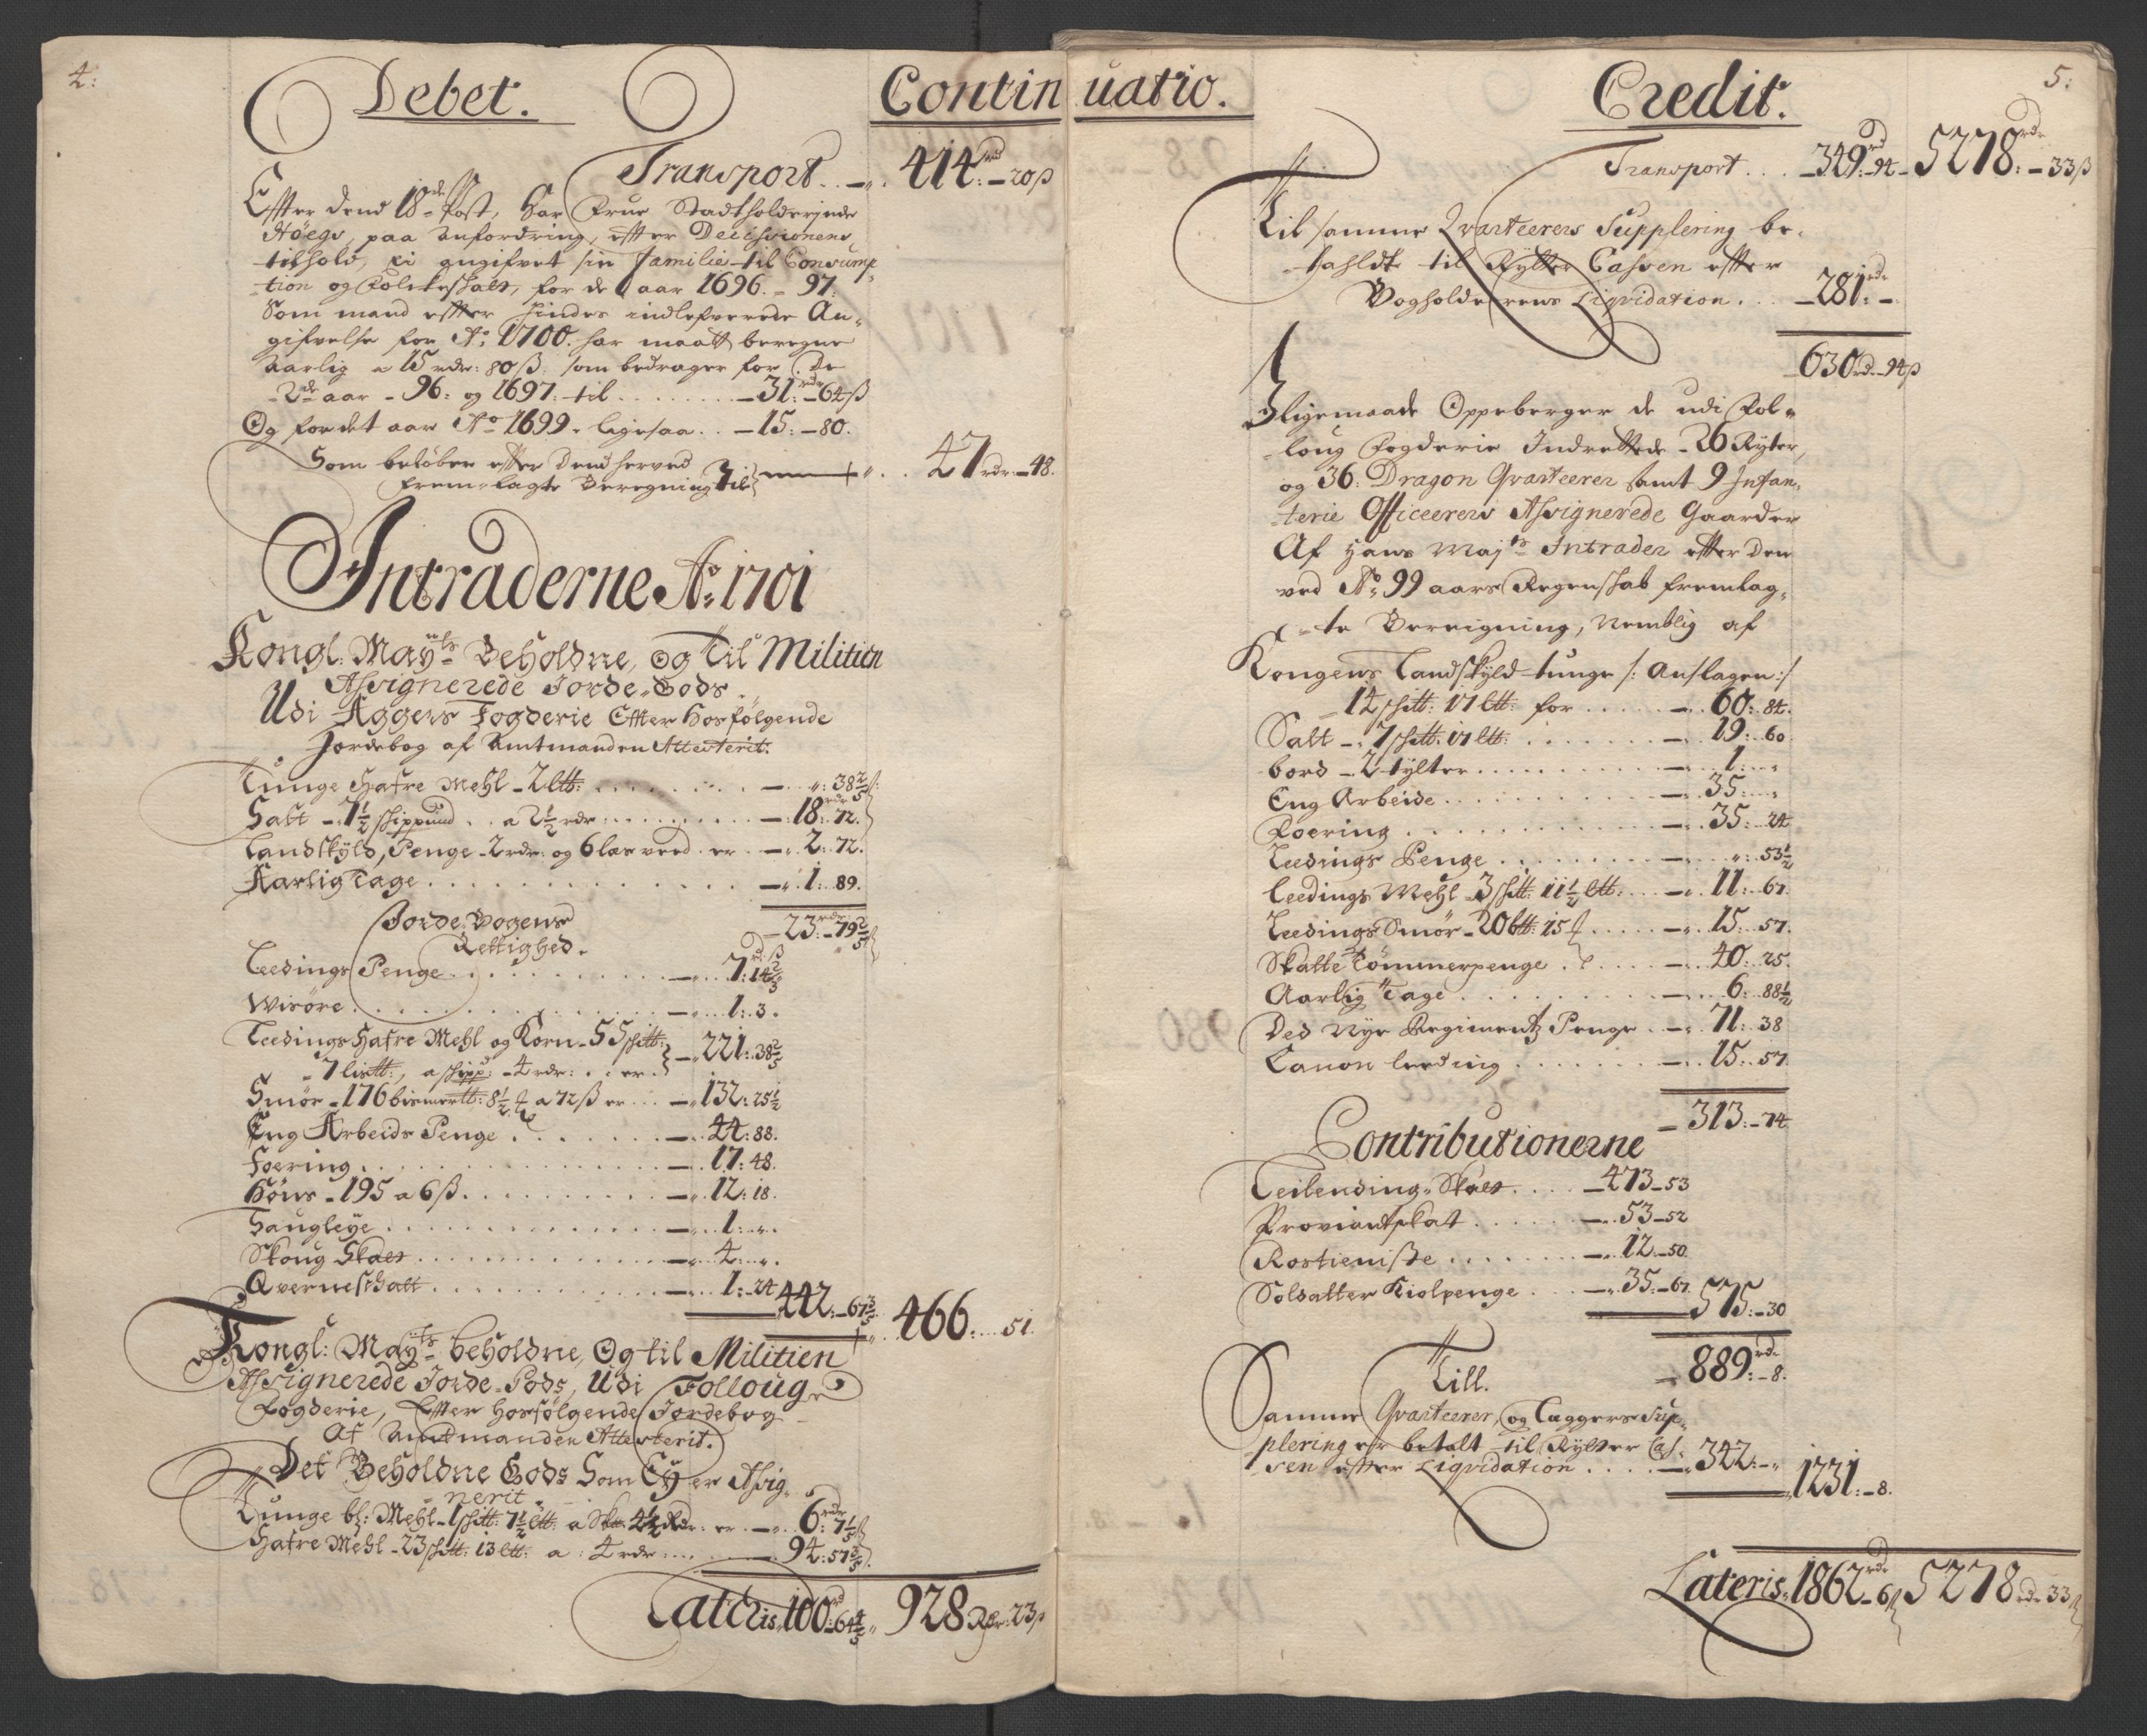 4:
Debet.
Contin
Transport . . — „ . 414rd – 20 ß
Effter dend 18de Post, har Frue Stadtholderinde
Høegs, paa anfordring, effter Decissionens
tilhold, ei angifvet sin familie til Consump-
tion og Folckeskatt, for de aar 1696. – 97:
Som mand effter hindes indlefverede An-
gifvelse for Aº: 1700. har maatt beregne
Aarlig a 15 rdr: 80 ß. som bedrager for de
2de aar – 96: og 1697: til . . . . . . . . – 31:rdr – 64 ß
Og for det aar Aº 1699. ligesaa . . – 15: – 80.
Som beløber effter dend herved
frem-lagte Beregning til . . 47 rdr – 48.
Intraderne Aº 1701
Kongl: Mayts Beholdne, og til Militien
Assignerede Jorde-Gods.
Udi Aggers Fogderie Effter hosfølgende
Jordebog af Amtmanden Attesterit:
Tunge Hafre Mehl – 2 ltt: . . . . . . . — „: 38 2/5 ß
Salt – 7 1/2 schippund . . a 2 1/2 rdr: . . . . . . — 18rdr: 72.
Landskyld, Penge – 2 rdr: og 6 læs veed . er . — 2: 72.
Aarlig Tage . . . . . . . . . . . . — „ 1: 89.
– 23:rdr – 79 2/5 ß
Jorde Bogens
Rettighed.
Leedings Penge . . . . . . . . . . — . . 7: 14 2/3
Wisøre . . . . . . . . . . . . . . — . . 1: 3.
Leedings Hafre Mehl og Korn – 55 schtt: — 221: 38 2/5
7 lisett:, a schipp: – 4 rdr: . . er .
Smør – 176 bismertt: 8 1/2 a 72 ß er . . . — 132: 25 1/2
Eng Arbeids Penge . . . . . . . . — . 44: 88.
Foering . . . . . . . . . . . . . . — . 17: 48.
Høns – 195 a 6 ß . . . . . . . . . . — . 12: 18.
Haugleye . . . . . . . . . . . . . . — . . 1: „ .
Skoug Skatt . . . . . . . . . . . . — . . 4: „ .
Qverneskatt . . . . . . . . . . . . — . . 1: 24
442: – 67 3/5 . . 466: . . . 51.
Kongl: Mayts beholdne, Og til Militien
Assignerede Jorde-Gods, Udi Folloug
Fogderie, Effter hosfølgende Jordebog
Af Amtmanden Attesterit.
Det Beholdne Gods Som Ey er Assig-
nerit.
Tunge bl: Mehl – 1 schtt: 7 1/2 ltt: a Sktt: 4 1/2 Rdr: er — . . 6:rdr 7 1/5 ß
Hafre Mehl – 23 schtt: 13 ltt: a: 4 rdr: . . . 94: 57 3/5
Lateris 100rd: 64 4/5 „ 928 Rdr: 23 ß
5:
uatio.
Credit.
Transport . . . – 349:rd – 94 – 5278:rdr – 33 ß
Til samme Qvarteerers Supplering be-
tahldt til Rytter Cassen effter
Bogholderens Liqvidation . . . – 281:rdr –
630 rd – 94 ß
Jligemaade Oppeberger de udi Fol-
loug Fogderie Indrettede – 26 Rytter,
og 36: Dragon Qvarteerer samt 9 Infan-
terie Officeerers Assignerede Gaarder
Af Hans Majts Intrader effter den
ved Aº 99 aars Regenskab fremlag-
te Beregning, Nemblig af
Kongens Landskyld tunge /: Anslagen :/
14 schtt: 17 ltt: for . . . . . . — . . 60: 84.
Salt – . 7 schtt: 17 ltt: . . . . . . . — . . 19: 60
bord – 2 tylter . . . . . . . . . . . — . . 1: . . „
Eng Arbeide . . . . . . . . . . . — . 35: . . „
Foering . . . . . . . . . . . . . — . . 35: 24
Leedings Penge . . . . . . . . . — . . „: 53 1/2
Leedings Mehl – 3 schtt: 11 1/2 ltt: . . . — . 11: 67.
Leedings Smør – 20 btt: 15 . . . . . — . 15: 57.
Skatte Tømmerpenge . . . . . . — . . 40: 25.
Aarlig Tage . . . . . . . . . . — . . . 6: 88 1/2
Ded Nye Regimentz Penge . . — . 71: 38
Canon leeding . . . . . . . . — . . 15: 57.
– 313: – 74
Contributionerne
Leilending-Skatt . . . . – 473 – 53
Proviantskat . . . . . . — . 53 – 52
Rostieniste . . . . . . . — . 12 – 50.
Soldatter Kiolpenge . . . — . 35 – 67.
575: – 30
– 889:rdr – 8.
Till.
Samme Qvarteerer, og Læggers Sup-
plering er betalt til Rytter Cas-
sen effter Liqvidation . . . . — 342: – „ 1231: – 8.
Lateris 1862rdr – 6 ß 5278 rdr 33 ß